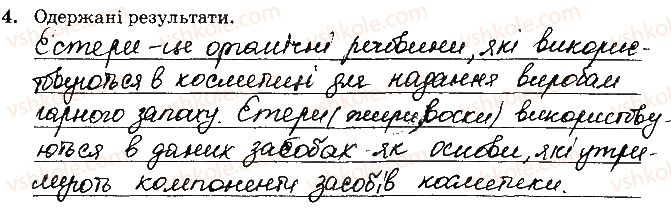 4. Одержані результати.
Естери - це органічні речовини, які викорис-
товуються в косметиці для надання виробам
гарного запаху. Естери (жири, воски) використову-
ються в даних засобах як основи, які утри-
мують компоненти засобів косметики.